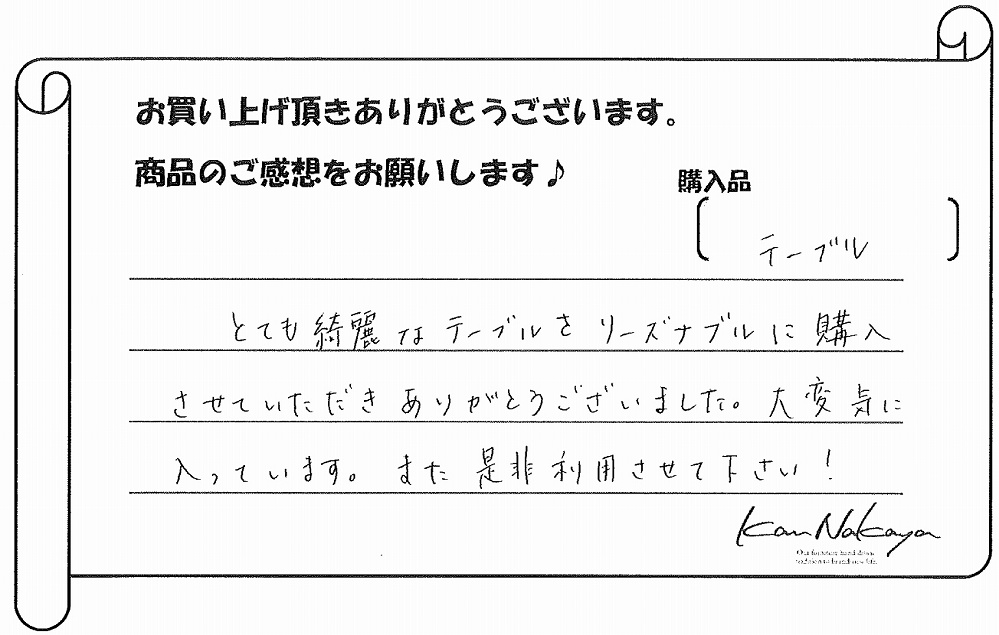 お買い上げ頂きありがとうございます。
商品のご感想をお願いします♪
購入品
テーブル
とても綺麗なテーブルをリーズナブルに購入
させていただきありがとうございました。大変気に
入っています。また是非利用させて下さい!
Kan Nakaya